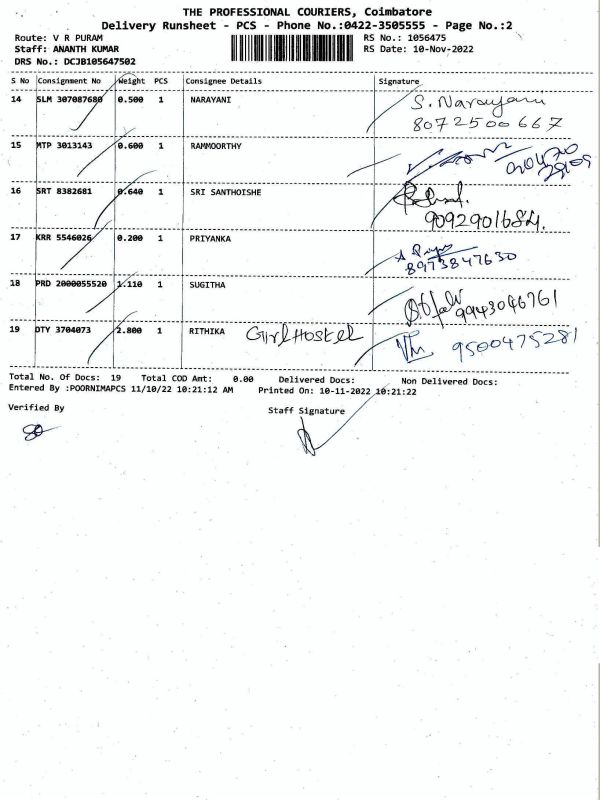 THE PROFESSIONAL COURIERS, Coimbatore
Delivery Runsheet - PCS - Phone No.:0422-3505555 - Page No.:2
Route: V R PURAM RS No.: 1056475
Staff: ANANTH KUMAR RS Date: 10-Nov-2022
DRS No.: DCJB105647502
S No Consignment No Weight PCS Consignee Details Signature
14 SLM 307087680 0.500 1 NARAYANI S. Narayani
8072500667
15 MTP 3013143 0.600 1 RAMMOORTHY
16 SRT 8382681 0.640 1 SRI SANTHOISHE
9092901684.
17 KRR 5546026 0.200 1 PRIYANKA
8973847630
18 PRD 2000055520 1.110 1 SUGITHA
9943046761
19 DTY 3704073 2.800 1 RITHIKA Girl Hostel 9500475281
Total No. Of Docs: 19 Total COD Amt: 0.00 Delivered Docs: Non Delivered Docs:
Entered By :POORNIMAPCS 11/10/22 10:21:12 AM Printed On: 10-11-2022 10:21:22
Verified By Staff Signature